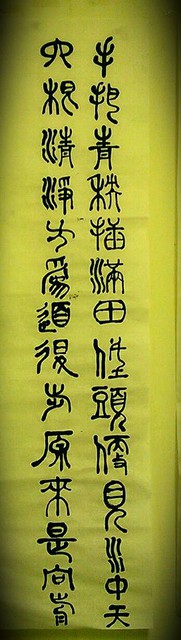 手把青秧插滿田低頭便見水中天
六根清淨方爲道退步原來是向前